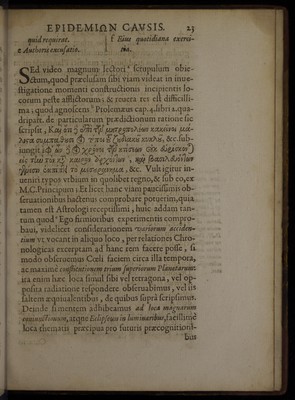 EPIDEMIΩN CAVSIS. 23
quid requirat. f Eius quotidiana exerci-
e Authoris excusatio. tia.
SEd video magnum lectori scrupulum obie-
ctum, quod præclusam sibi viam videat in inue-
stigatione momenti constructionis incipientis lo-
corum peste afflictorum: & reuera res est difficilli-
ma: quod agnoscens Ptolemæus cap. 4. libri 2. qua-
dripart. de particularium prædictionum ratione sic
scripsit,
&c. sub-
iungit,
&c. Vult igitur in-
uniri typos vrbium in quolibet regno, & sub eo, ex
M.C. Principum: Et licet hanc viam paucissimis ob-
seruationibus hactenus comprobare potuerim, quia
tamen est Astrologi receptissimi, huic addam tan-
tum quod Ego sumioribus experimentis compro-
baui, videlicet considerationem variorum acciden-
tium vt vocant in aliquo loco, per relationes Chro-
nologicas excerptam ad hanc rem facere posse, si
modo obseruemus Cœli faciem circa illa tempora,
ac maxime constitutionem trium superiorum Planetarum:
ita enim huic loca simul sibi vel tetragona, vel op-
posita radiatione respondere obseruabimus, vel iis
saltem æquiualentibus, de quibus supra scripsimus.
Deinde si mentem adhibeamus ad loca magnarum
coniunctionum, atque Eclipsium in luminaribus, facillime
loca thematis præcipua pro futuris præcognitioni-
bus